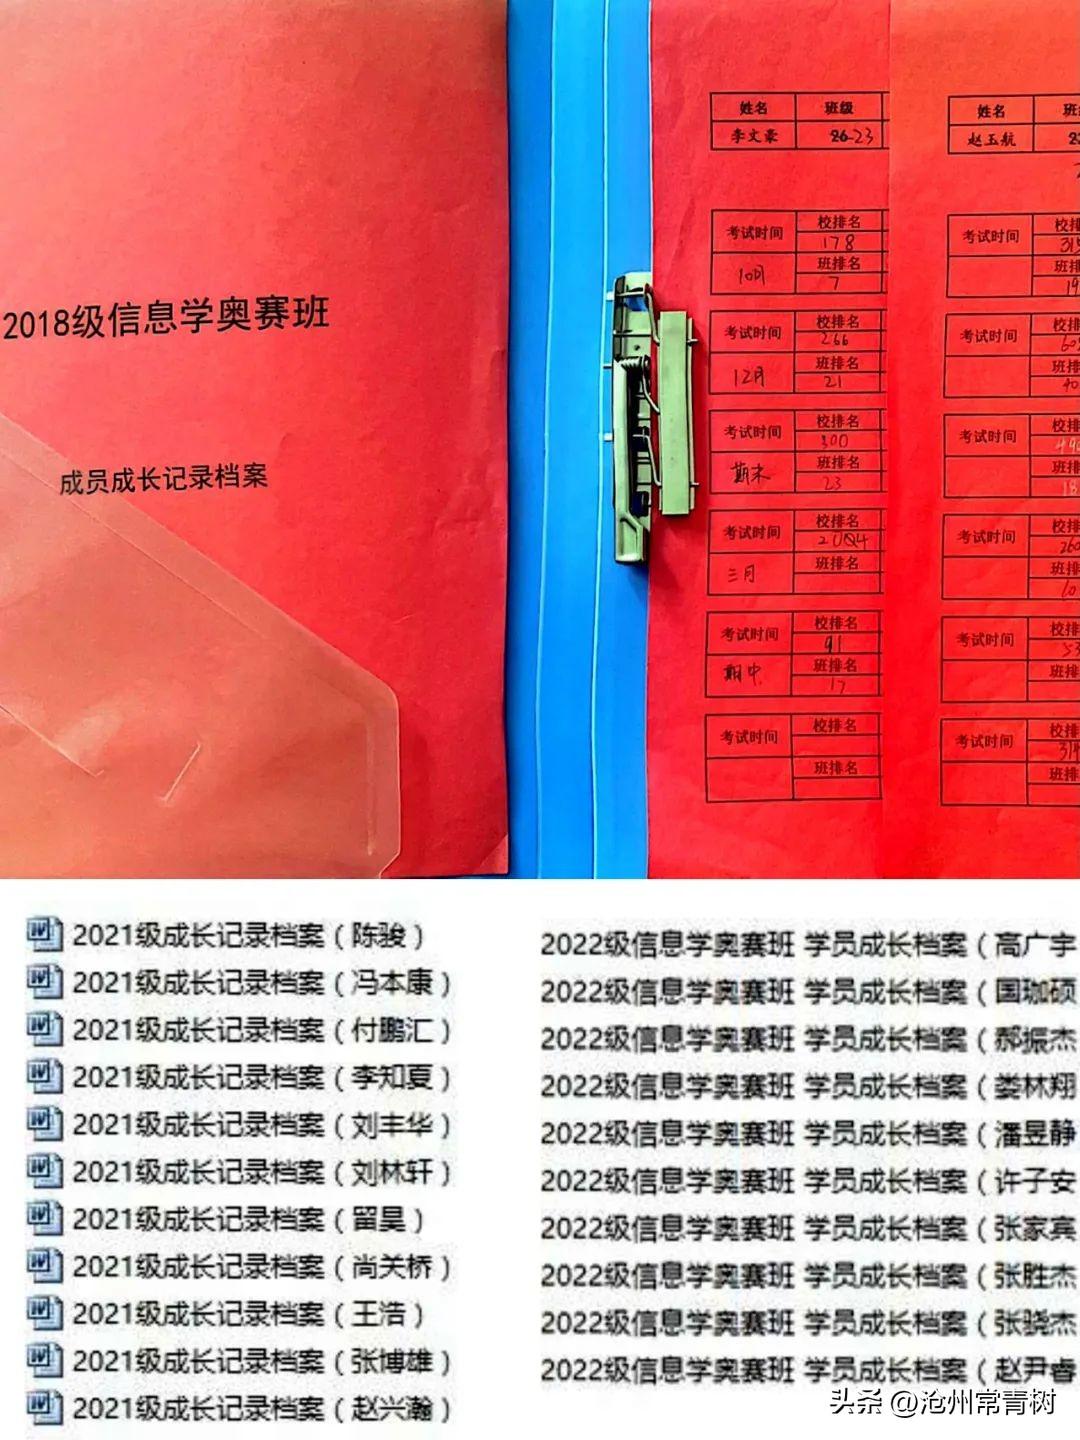 2018级信息学奥赛班
成员成长记录档案
姓名 班级
李文豪 26-23
考试时间 校排名
178
10月 班排名
7
考试时间 校排名
266
12月 班排名
21
考试时间 校排名
300
期末 班排名
23
考试时间 校排名
三月 班排名
考试时间 校排名
91
期中 班排名
17
考试时间 校排名
班排名
姓名 班
赵玉航
考试时间 校排
班排
19
考试时间 校排
班排
40
考试时间 校排
班排
18
考试时间 校排
260
班排
考试时间 校排
53
班排
考试时间 校排
314
班排
2021级成长记录档案（陈骏）
2021级成长记录档案（冯本康）
2021级成长记录档案（付鹏汇）
2021级成长记录档案（李知夏）
2021级成长记录档案（刘丰华）
2021级成长记录档案（刘林轩）
2021级成长记录档案（留昊）
2021级成长记录档案（尚关桥）
2021级成长记录档案（王浩）
2021级成长记录档案（张博雄）
2021级成长记录档案（赵兴瀚）
2022级信息学奥赛班 学员成长档案（高广宇
2022级信息学奥赛班 学员成长档案（国珈硕
2022级信息学奥赛班 学员成长档案（郝振杰
2022级信息学奥赛班 学员成长档案（娄林翔
2022级信息学奥赛班 学员成长档案（潘昱静
2022级信息学奥赛班 学员成长档案（许子安
2022级信息学奥赛班 学员成长档案（张家宾
2022级信息学奥赛班 学员成长档案（张胜杰
2022级信息学奥赛班 学员成长档案（张骁杰
2022级信息学奥赛班 学员成长档案（赵尹睿
头条 @沧州常青树